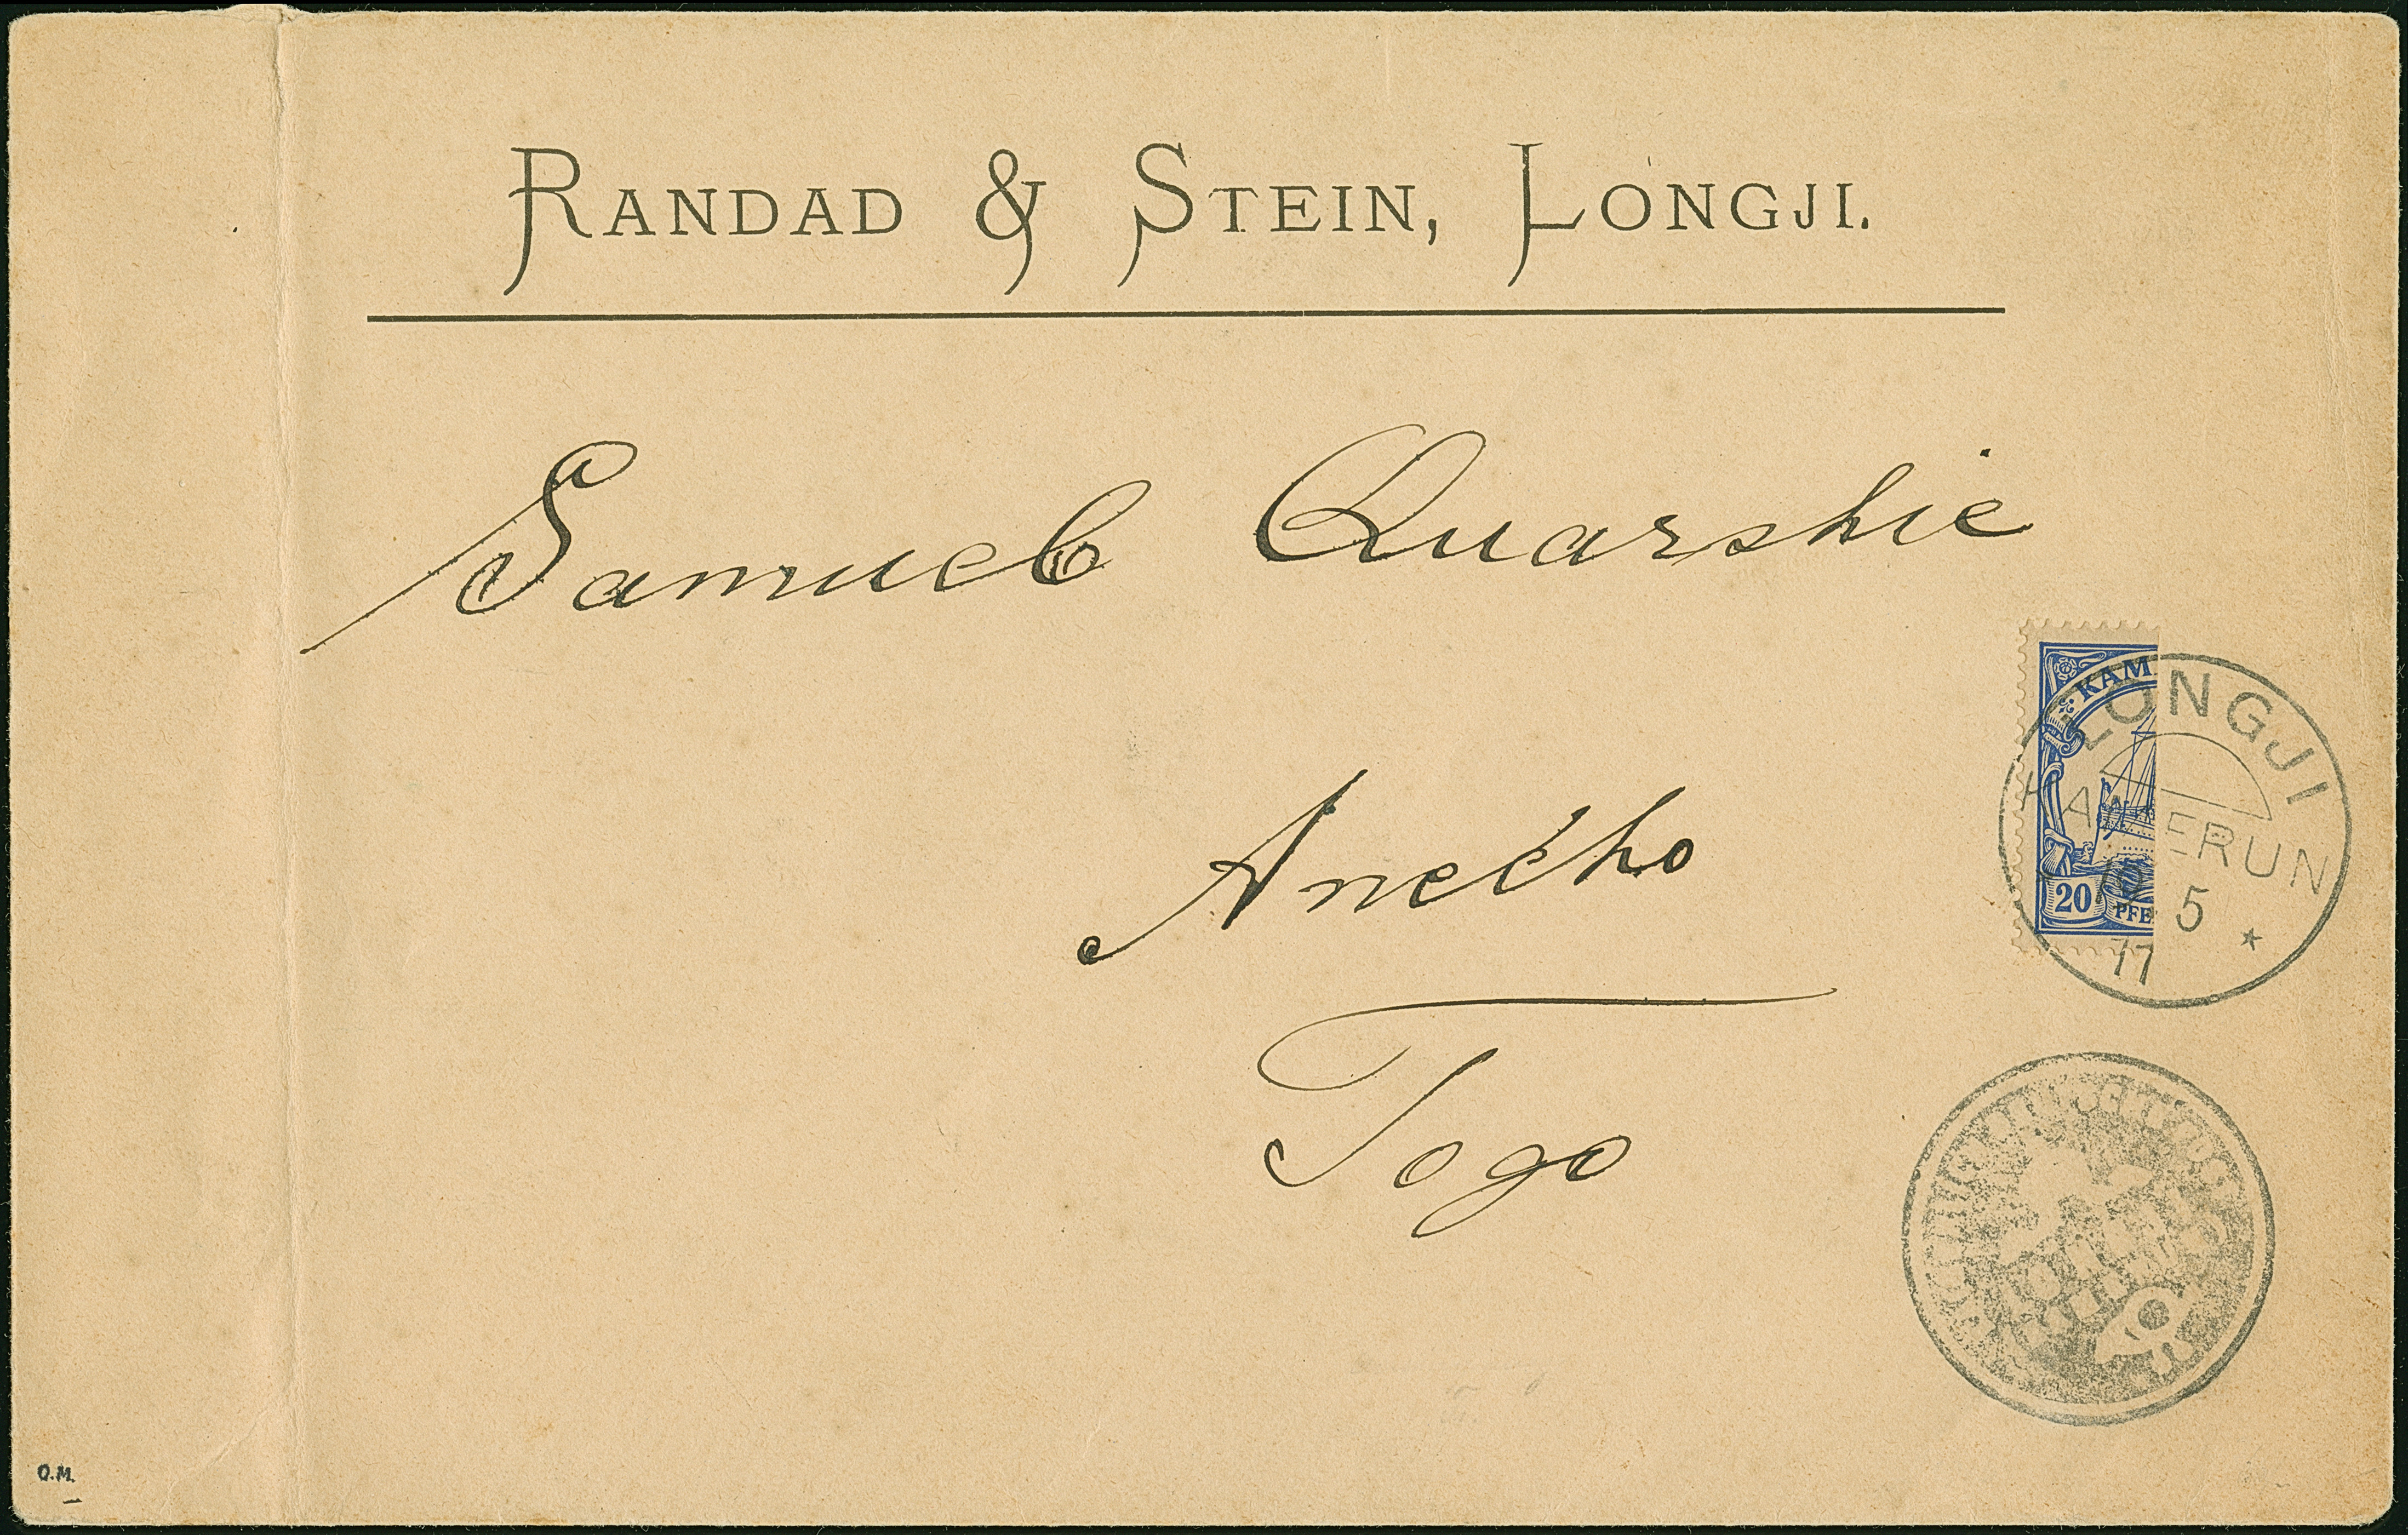 RANDAD & STEIN, LONGJI.
Samuel Quarshie
Anecho
Togo
KAM
20 PFE
LONGJI
KAMERUN
5
11
O.M.